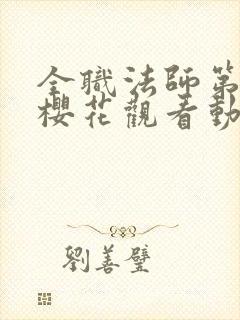 全職法師第
櫻花觀看動
劉善璧